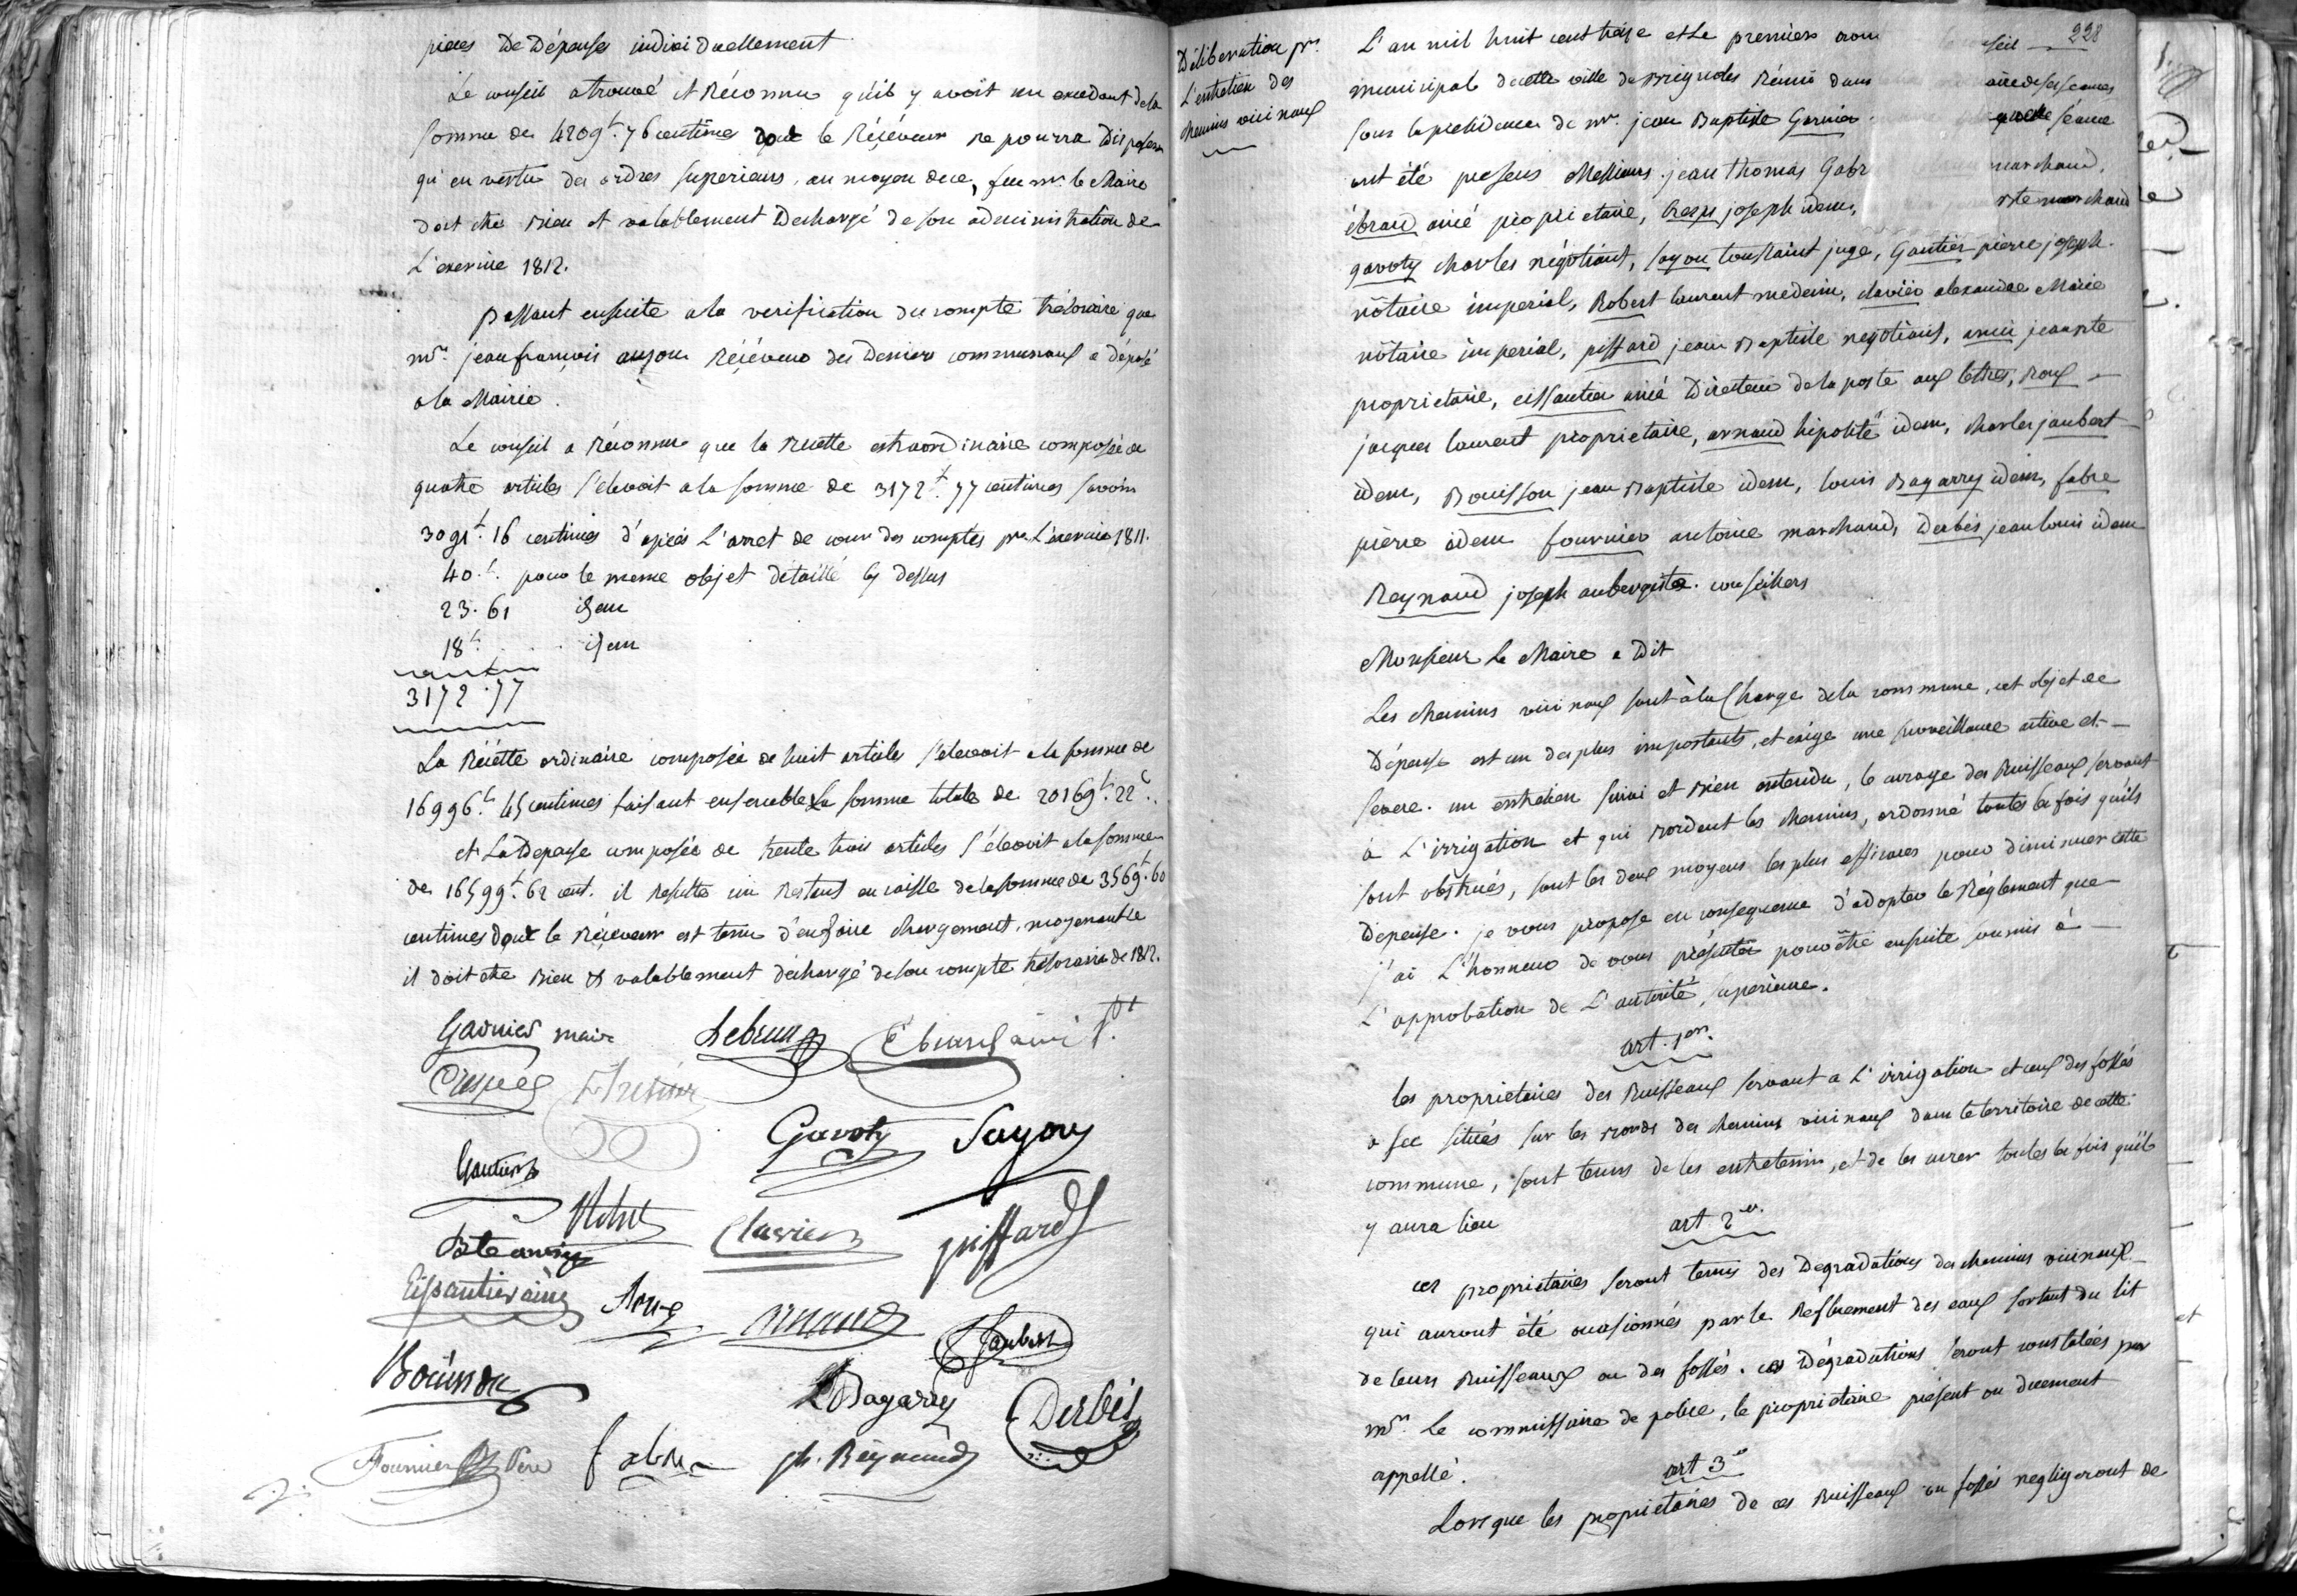 pieces De Dépenses individuellement
Le conseil a trouvé et Réconnu qu'il y avoit un excedant de la
somme de 4209f. 76 centimes dont le Réçéveur ne pourra Disposer
qu'en vertu des ordres superieurs, au moyen de ce, feu mr. le Maire
doit etre Bien et valablement Dechargé de son administration de
L'exercice 1812.
passant ensuite a la verification du compte trésoraire que
mr. jean françois Réçéveur des Deniers communaux a déposé
a la Mairie.
Le conseil a Réconnu que la Recette extraordinaire composée de
quatre articles s'elevoit a la somme de 3172f. 77 centimes savoir
3091f. 16 centimes d'après L'arret de cour des comptes pr. L'exercice 1811.
40.f. pour le meme objet détaillé cy dessus
23. 61 idem
18f. idem
3172.77
La Réçétte ordinaire composée de huit articles s'elevoit a la somme de
16996f. 45 centimes faisant ensemble La somme totale de 20169f. 22c.
et La Depense composée de trente trois articles s'élevoit a la somme
de 16599f. 62 cent. il resulte un Restant en caisse de la somme de 3569f. 60
centimes dont le Réçeveur est tenu d'en faire chargement, moyenant ce
il doit etre Bien et valablement déchargé de son compte trésoraire de 1812.
Garnier maire Lebrun Ebrard ainé
Crespe
Gavoty Sayou
Gautier
Robert Clavier piffard
Bte amic
Eissautier ainé Roux arnaud
Jaubert
Bouisson L Bagarry Derbès
Fournier Pere fabre jh. Reynaud
228
Déliberation pr.
L'entretien des
chemins vicinaux
L'an mil huit cent treize et Le premiers seil
municipal de cette ville de Brignoles Réuni dans aire de ses séances
sous la présidence de mr. jean Baptiste Garnier quelle séance
ont été presens Messieurs jean thomas Gabr marchand,
ébrard ainé propriétaire, Crespe joseph idem, marchand
gavoty charles négotiant, sayou toussaint juge, Gautier pierre joseph
nôtaire imperial, Robert laurent medecin, clavier alexandre Marie
nôtaire imperial, piffard jean Baptiste negotiant, amic jean bte
proprietaire, eissautier ainé Directeur de la poste aux lettres, Roux
jacques laurent propriétaire, arnaud hipolite idem, charles jaubert
idem, Bouisson jean Baptiste idem, louis Bagarry idem, fabre
pierre idem fournier antoine marchand, Derbès jean louis idem
Reynaud joseph aubergiste. conseillers
Monsieur Le Maire a Dit
Les chemins vicinaux sont à la Charge de la commune, cet objet de
Dépense est un des plus importants, et exige une surveillance active et
severe. un entretien suivi et Bien entendu, le curage des Ruisseaux servant
à L'irrigation et qui Bordent les chemins, ordonné toutes les fois qu'ils
sont obstrués, sont les deux moyens les plus efficaces pour diminuer cette
Dépense. je vous propose en consequence d'adopter le Réglement que
j'ai L'honneur de vous présenter pour être ensuite soumis à
L'approbation de L'autorité superieure.
art. 1er.
les proprietaires des Ruisseaux servant a L'irrigation et ceux des fossés
a sec situés sur les Bords des chemins vicinaux dans le territoire de cette
commune, sont tenus de les entretenir, et de les curer toutes les fois qu'il
y aura lieu
art 2e.
ces proprietaires seront tenus des Dégradations des chemins vicinaux
qui auront été occasionnés par le Refluement des eaux sortant du lit
de leurs Ruisseaux ou des fossés. ces Dégradations seront constatées par
mr. Le commissaire de police, le proprietaire présent ou duement
appellé.
art 3e
Lorsque les proprietaires de ces Ruisseaux ou fossés negligeront de